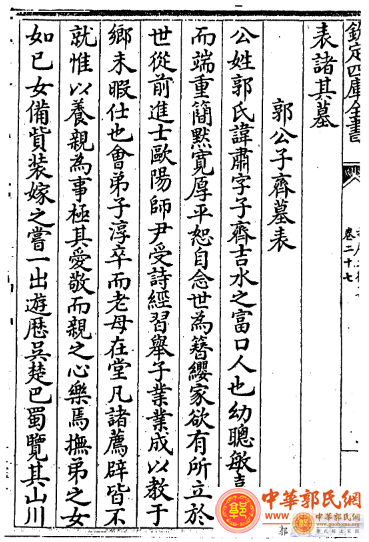 欽定四庫全書
卷二十七
表諸其墓
郭公子齊墓表
公姓郭氏諱肅字子齊吉水之富口人也幼聰敏
而端重簡黙寛厚平恕自念世為簪纓家欲有所立於
世從前進士歐陽師尹受詩經習舉子業業成以教于
鄉未暇仕也會弟子淳卒而老母在堂凡諸薦辟皆不
就惟以養親為事極其愛敬而親之心樂焉撫弟之女
如已女備貲装嫁之嘗一出遊歴吳楚巴蜀覽其山川
中華郭氏網